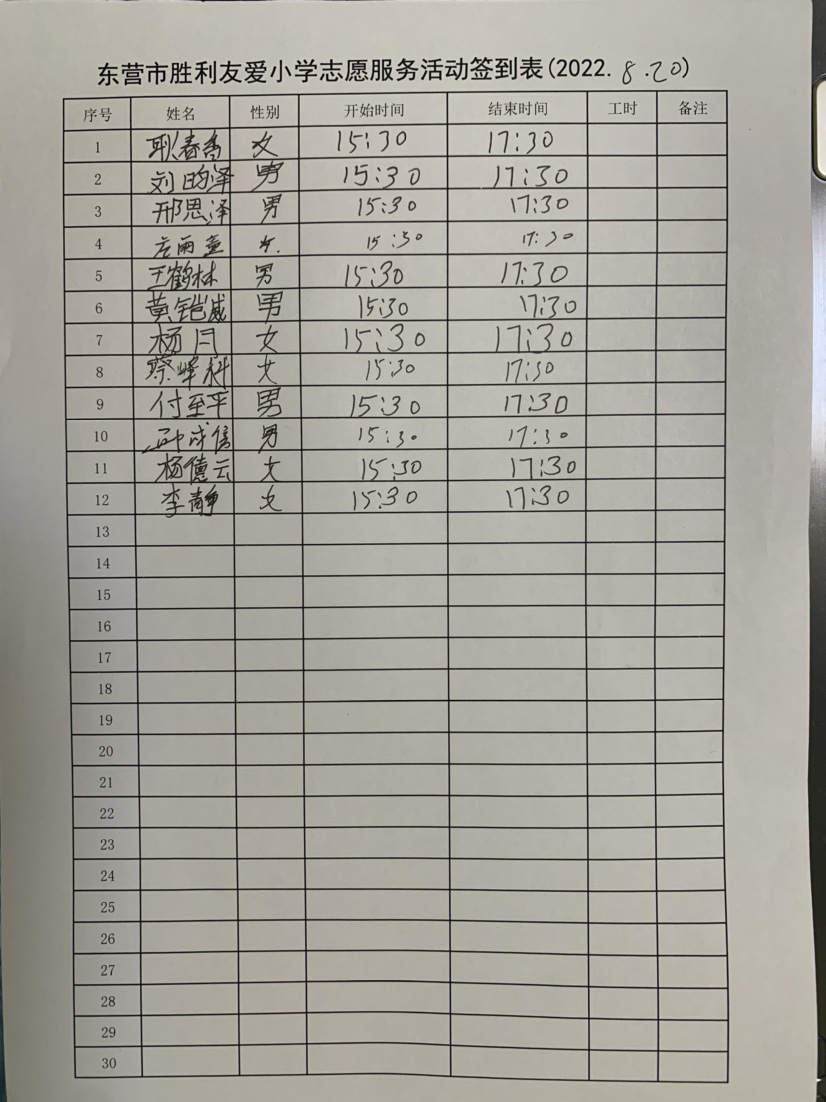 东营市胜利友爱小学志愿服务活动签到表(2022.8.20)
序号 姓名 性别 开始时间 结束时间 工时 备注
1 耿春香 女 15:30 17:30
2 刘昀泽 男 15:30 17:30
3 邢思泽 男 15:30 17:30
4 左雨童 女. 15:30 17:30
5 王鹤林 男 15:30 17:30
6 黄铠威 男 15:30 17:30
7 杨月 女 15:30 17:30
8 女 15:30 17:30
9 付至平 男 15:30 17:30
10 男 15:30 17:30
11 杨德云 女 15:30 17:30
12 李静 女 15:30 17:30
13
14
15
16
17
18
19
20
21
22
23
24
25
26
27
28
29
30